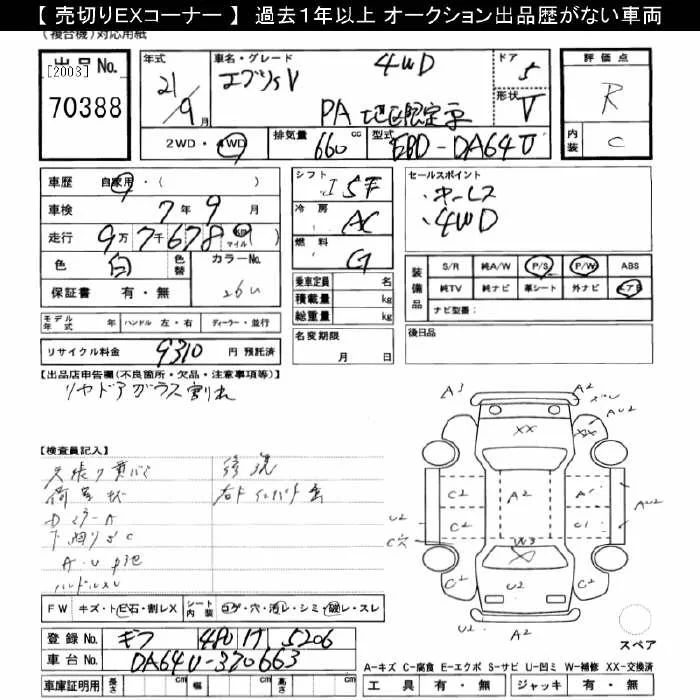 【 売切りEXコーナー 】 過去１年以上 オークション出品歴がない車両
(複合機)対応用紙
出品No. [2003] 70388
年式 21 / 9月
車名・グレード エブリィV 4WD PA 地区限定
ドア 5
形状 V
2WD・4WD 排気量 660 cc 型式 EBD-DA64V
評価点 R
内装 C
車歴 自家用・( )
車検 7年 9月
走行 9万7千678 マイル
色 白 色替 カラーNo. 26U
保証書 有・無
シフト I 5F
冷房 AC
燃料 G
乗車定員 名
積載量 kg
総重量 kg
名変期限 月 日
セールスポイント
・キーレス
・4WD
装備品 S/R 純A/W P/S P/W ABS
純TV 純ナビ 革シート 外ナビ エアB
ナビ型番：
後日品
モデル年式 年 ハンドル 左・右 ディーラー・並行
リサイクル料金 9310 円 預託済
【出品店申告欄(不良箇所・欠品・注意事項等)】
リヤドアガラス割れ
【検査員記入】
荷室状
Dミラー A
下廻りサビ C
A・U
ハンドルスレ
FW キズ・ト・E石・割レX シート内装 コゲ・穴・汚レ・シミ・破レ・スレ
登録No. ギフ 480 け 5206
車台No. DA64V-370663
車庫証明用 長さ cm 幅 cm 高さ cm
A3 A2
AU2
XX
C2 A2 A1 AU2
U2 C2 C1
C穴 W3
C2 U2 C2
U2 A2
スペア
A-キズ C-腐食 E-エクボ S-サビ U-凹ミ W-補修 XX-交換済
工具 有・無 ジャッキ 有・無